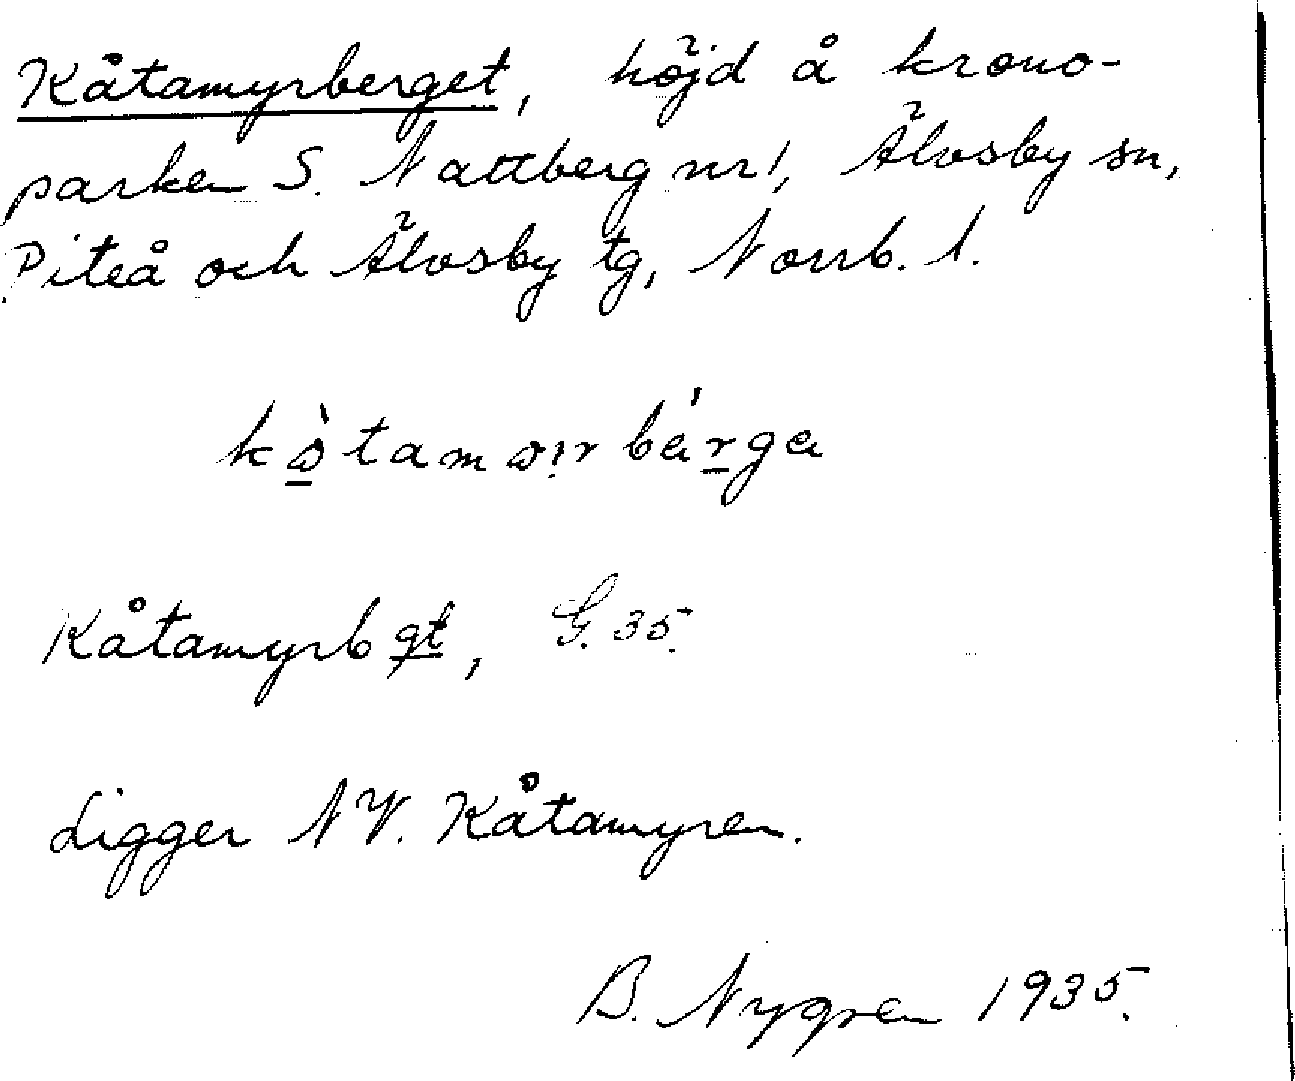 Kåtamyrberget, höjd å krono-
parken S. Nattberg nr 1, Älvsby sn,
Piteå och Älvsby tg, Norrb. l.
Kåtamyrbgt, G. 35.
Ligger NV. Kåtamyren.
B. Nygren 1935.